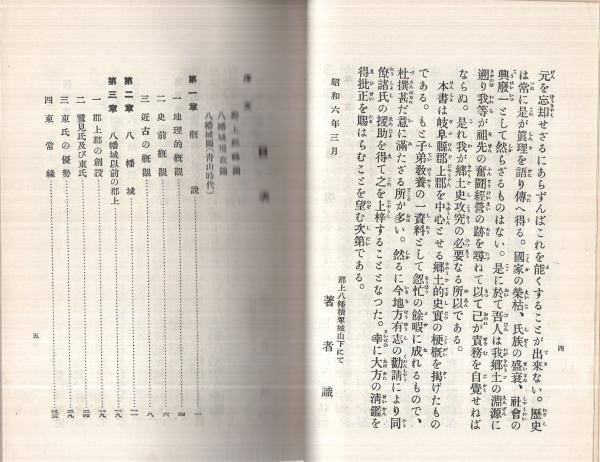 元を忘却せざるにあらずんばこれを能くすることが出來ない。歷史
は常に是が眞理を語り傳へ得る。國家の榮枯、氏族の盛衰、社會の
興廢一として然らざるものはない。是に於て吾人は我鄕土の淵源に
遡り我等が祖先の奮鬪經營の跡を尋ねて以て己が責務を自覺せねば
ならぬ。是れ我が鄕土史攻究の必要なる所以である。
本書は岐阜縣郡上郡を中心とせる鄕土的史實の梗槪を揭げたもの
である。もと子弟敎養の一資料として怱忙の餘暇に成れるもので、
杜撰甚だ意に滿たざる所が多い。然るに今地方有志の勸請により同
僚諸氏の援助を得て之を上梓することとなつた。幸に大方の淸鑑を
得批正を賜はらむことを望む次第である。
昭和六年三月
郡上八幡積翠城山下にて
著者識
四
目次
序文
郡上郡略圖
八幡城現在圖
八幡城圖(靑山時代)
第一章 槪說 一
一 地理的槪觀 一
二 史前槪觀 四
三 近古の槪觀 八
第二章 八幡城 二
第三章 八幡城以前の郡上 一九
一 郡上郡の創設 一九
二 鷲見氏及び東氏 二四
三 東氏の優勢 二九
四 東常緣 三三
五